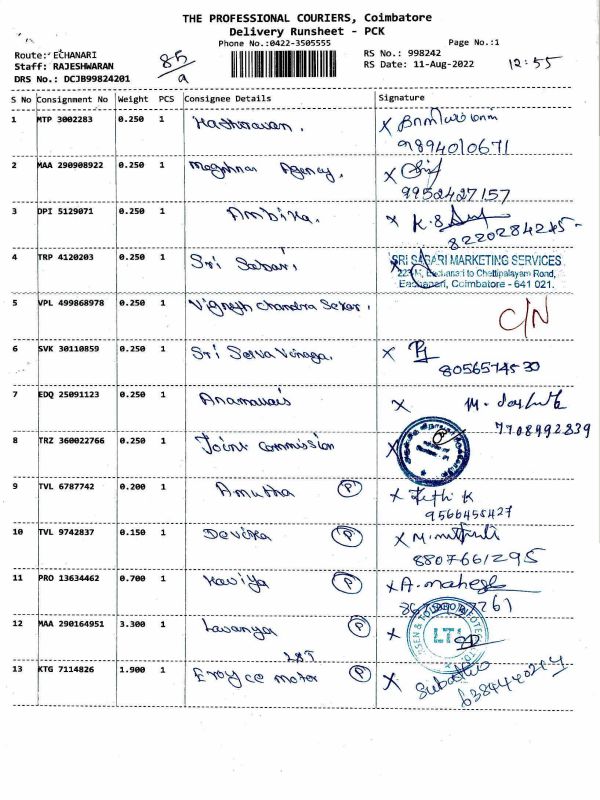 THE PROFESSIONAL COURIERS, Coimbatore
Delivery Runsheet - PCK
Phone No.:0422-3505555
Page No.:1
Route: ECHANARI
Staff: RAJESHWARAN
DRS No.: DCJB99824201
85/9
RS No.: 998242
RS Date: 11-Aug-2022
12:55
S No Consignment No Weight PCS Consignee Details Signature
1 MTP 3002283 0.250 1
9894010671
2 MAA 290908922 0.250 1 Agency.
9952427157
3 DPI 5129071 0.250 1 Ambika. K.S
8220284245
4 TRP 4120203 0.250 1 Sri Sabari
SRI SABARI MARKETING SERVICES
Eachanari to Chettipalayam Road,
Eachanari, Coimbatore - 641 021.
5 VPL 499868978 0.250 1 Vignesh Chandra Sekar. C/N
6 SVK 30110859 0.250 1 Sri Selva Vinaga.
8056574530
7 EDQ 25091123 0.250 1 M.
7708992839
8 TRZ 360022766 0.250 1 Joint Commission
9 TVL 6787742 0.200 1 Amutha P K
9566458427
10 TVL 9742837 0.150 1 Devika P
8807661295
11 PRO 13634462 0.700 1 Kaviya P A. Mahesh
12 MAA 290164951 3.300 1 Lavanya P
L&T
LTI
13 KTG 7114826 1.900 1 motor P
6384440244